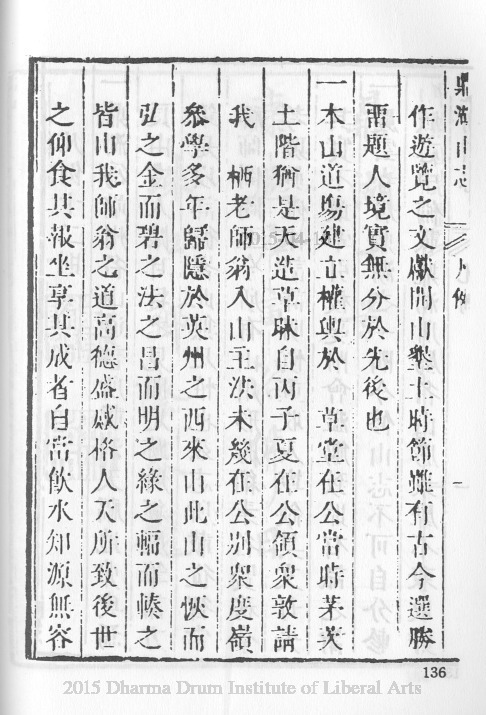 鼎湖山志 凡例 一
作遊覽之文獻開山墾土時節雖有古今選勝
需題人境實無分於先後也
一本山道場建立權輿於 草堂在公當時茅茨
土階猶是天造草昧自丙子夏在公領衆敦請
我 栖老師翁入山主法未幾在公別衆度嶺
叅學多年歸隱於英州之西來山此山之恢而
弘之金而碧之法之昌而明之緣之輻而輳之
皆由我師翁之道高德盛感格人天所致後世
之仰食其報坐享其成者自當飲水知源無容
136
2015 Dharma Drum Institute of Liberal Arts